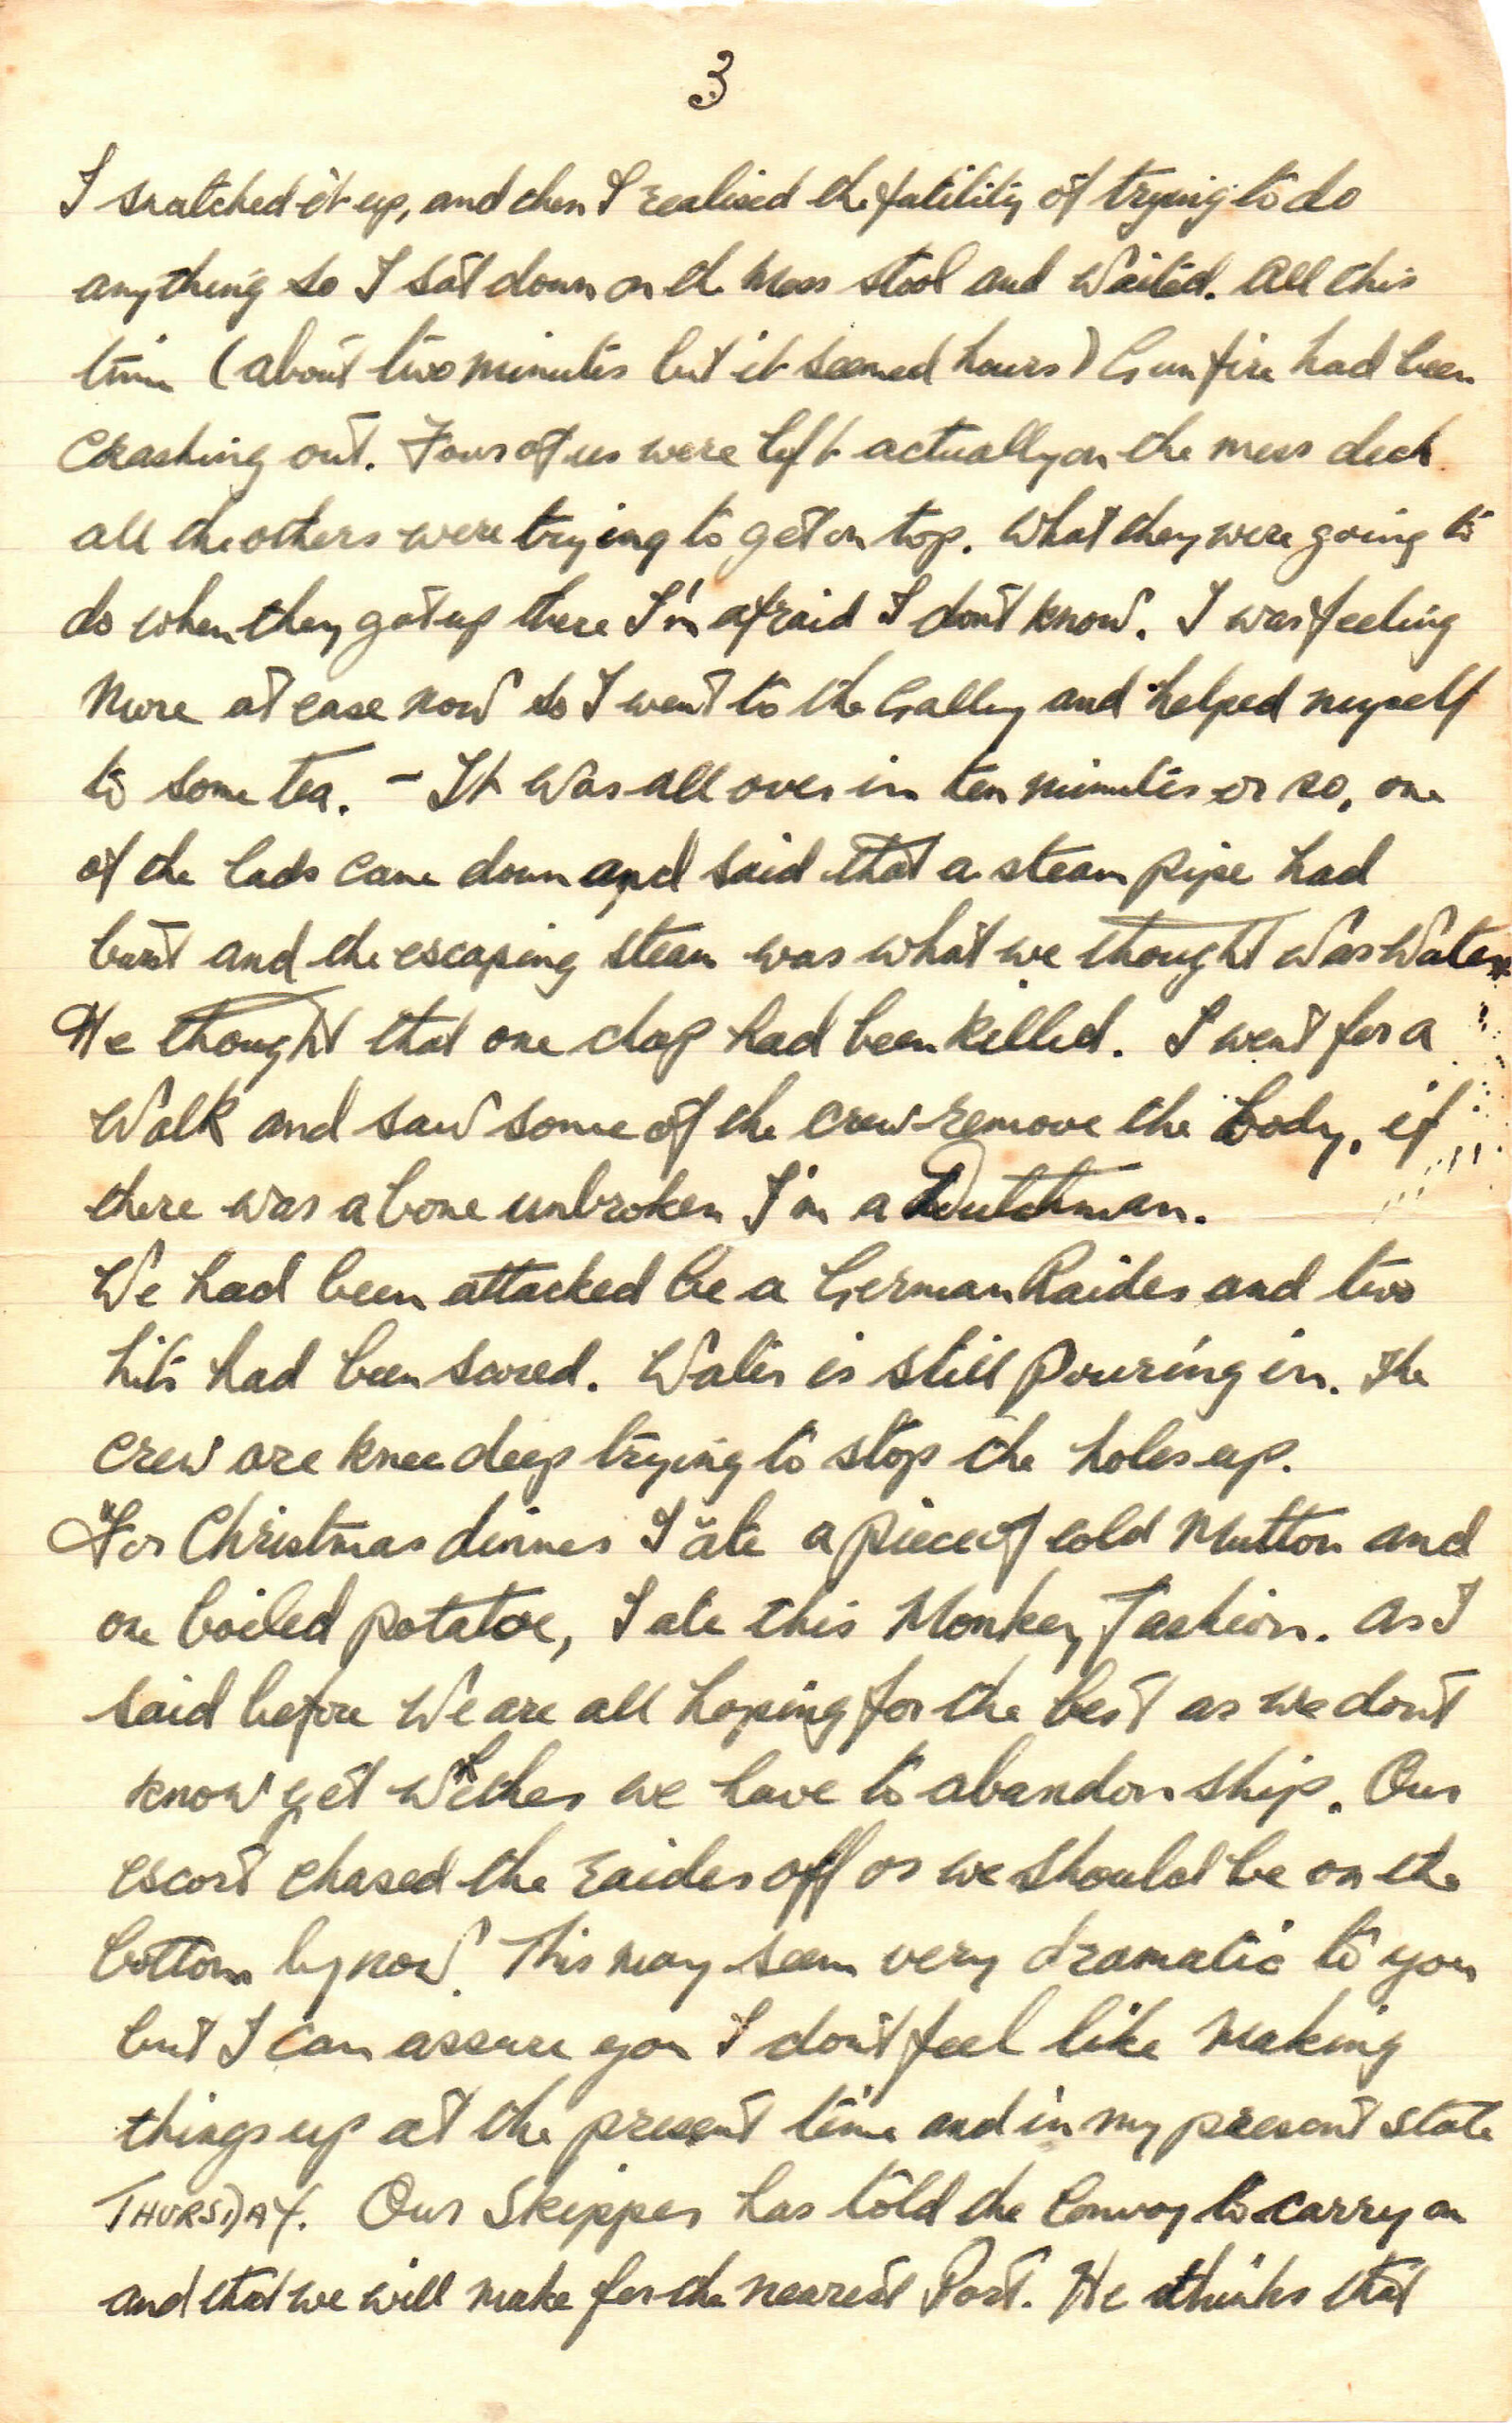 3
I snatched it up, and then I realised the futility of trying to do
anything so I sat down on the Mess stool and waited. All this
time (about two minutes but it seemed hours) Gunfire had been
crashing out. Four of us were left actually on the mess deck
all the others were trying to get on top. What they were going to
do when they got up there I'm afraid I don't know. I was feeling
more at ease now so I went to the Galley and helped myself
to some tea. – It was all over in ten minutes or so, one
of the lads came down and said that a steam pipe had
burst and the escaping steam was what we thought was water
He thought that one chap had been killed. I went for a
walk and saw some of the crew remove the body, if
there was a bone unbroken I'm a Dutchman.
We had been attacked be a German Raider and two
hits had been scored. Water is still pouring in. The
crew are knee deep trying to stop the holes up.
For Christmas dinner I ate a piece of cold Mutton and
one boiled potatoe, I ate this Monkey Fashion. As I
said before We are all hoping for the best as we don't
know yet wether we have to abandon ship. Our
escort chased the raider off or we should be on the
bottom by now. This may seem very dramatic to you
but I can assure you I don't feel like making
things up at the present time and in my present state
THURSDAY. Our Skipper has told the Convoy to carry on
and that we will make for the nearest Port. He thinks that